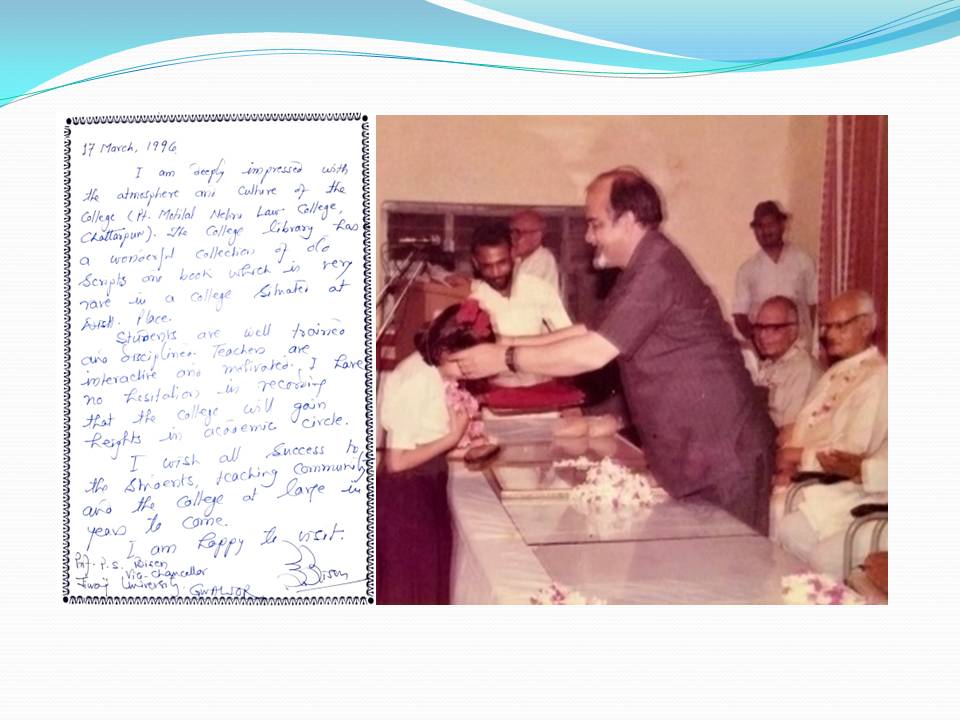 17 March, 1996
I am deeply impressed with
the atmosphere and culture of the
College (Pt. Motilal Nehru Law College,
Chattarpur). The College library has
a wonderful collection of old
Scripts and book which is very
rare in a college Situated at
Place.
Students are well trained
and disciplined. Teachers are
interactive and motivated. I have
no hesitation in recording
that the college will gain
heights in academic circle.
I wish all Success to
the Students, teaching community
and the College at large in
years to come.
I am happy to visit.
Prof. P.S. Bisen
Vice-Chancellor
Jiwaji University
GWALIOR
Bisen